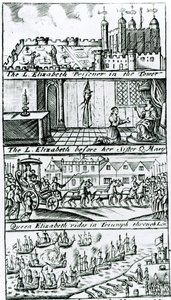 The L. Elizabeth Prisoner in the Tower
The L. Elizabeth before her Sister Q. Mary
Queen Elizabeth rides in Triumph through Lon